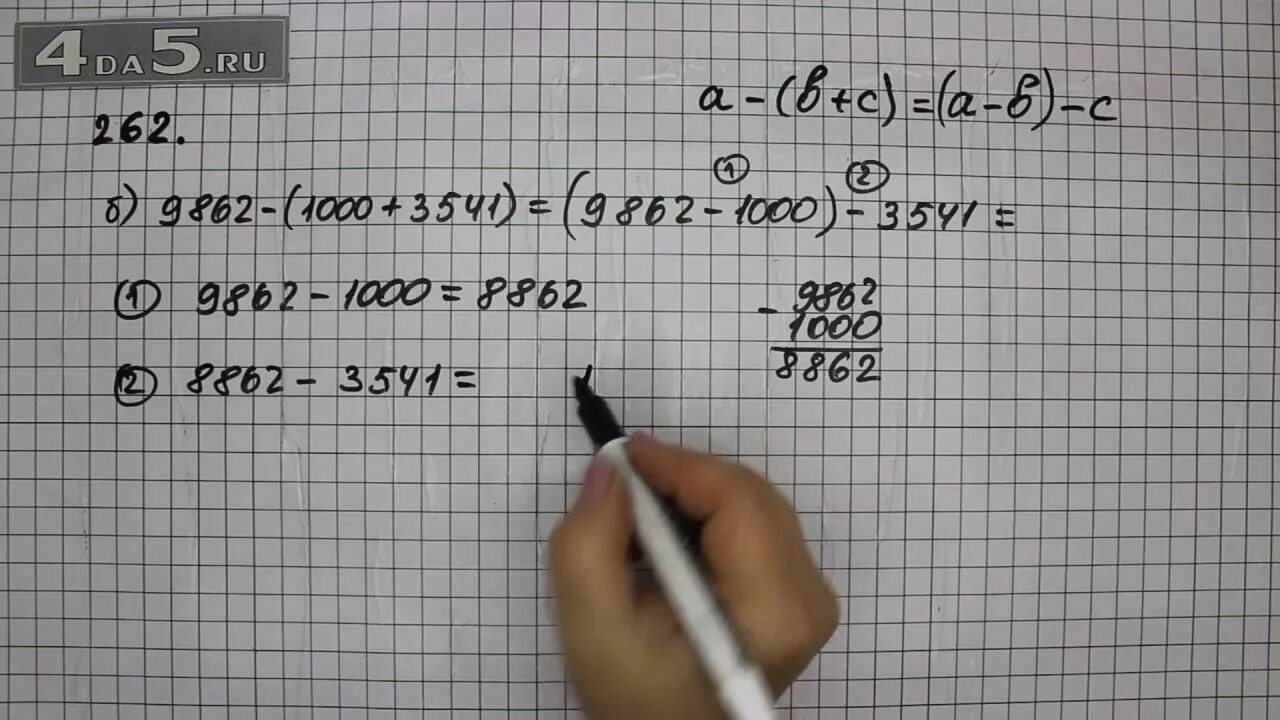 4DA5.RU
a-(в+c)=(a-в)-c
262.
① ②
б) 9862-(1000+3541)=(9862-1000)-3541=
① 9862-1000=8862
② 8862-3541=
- 9862
1000
8862